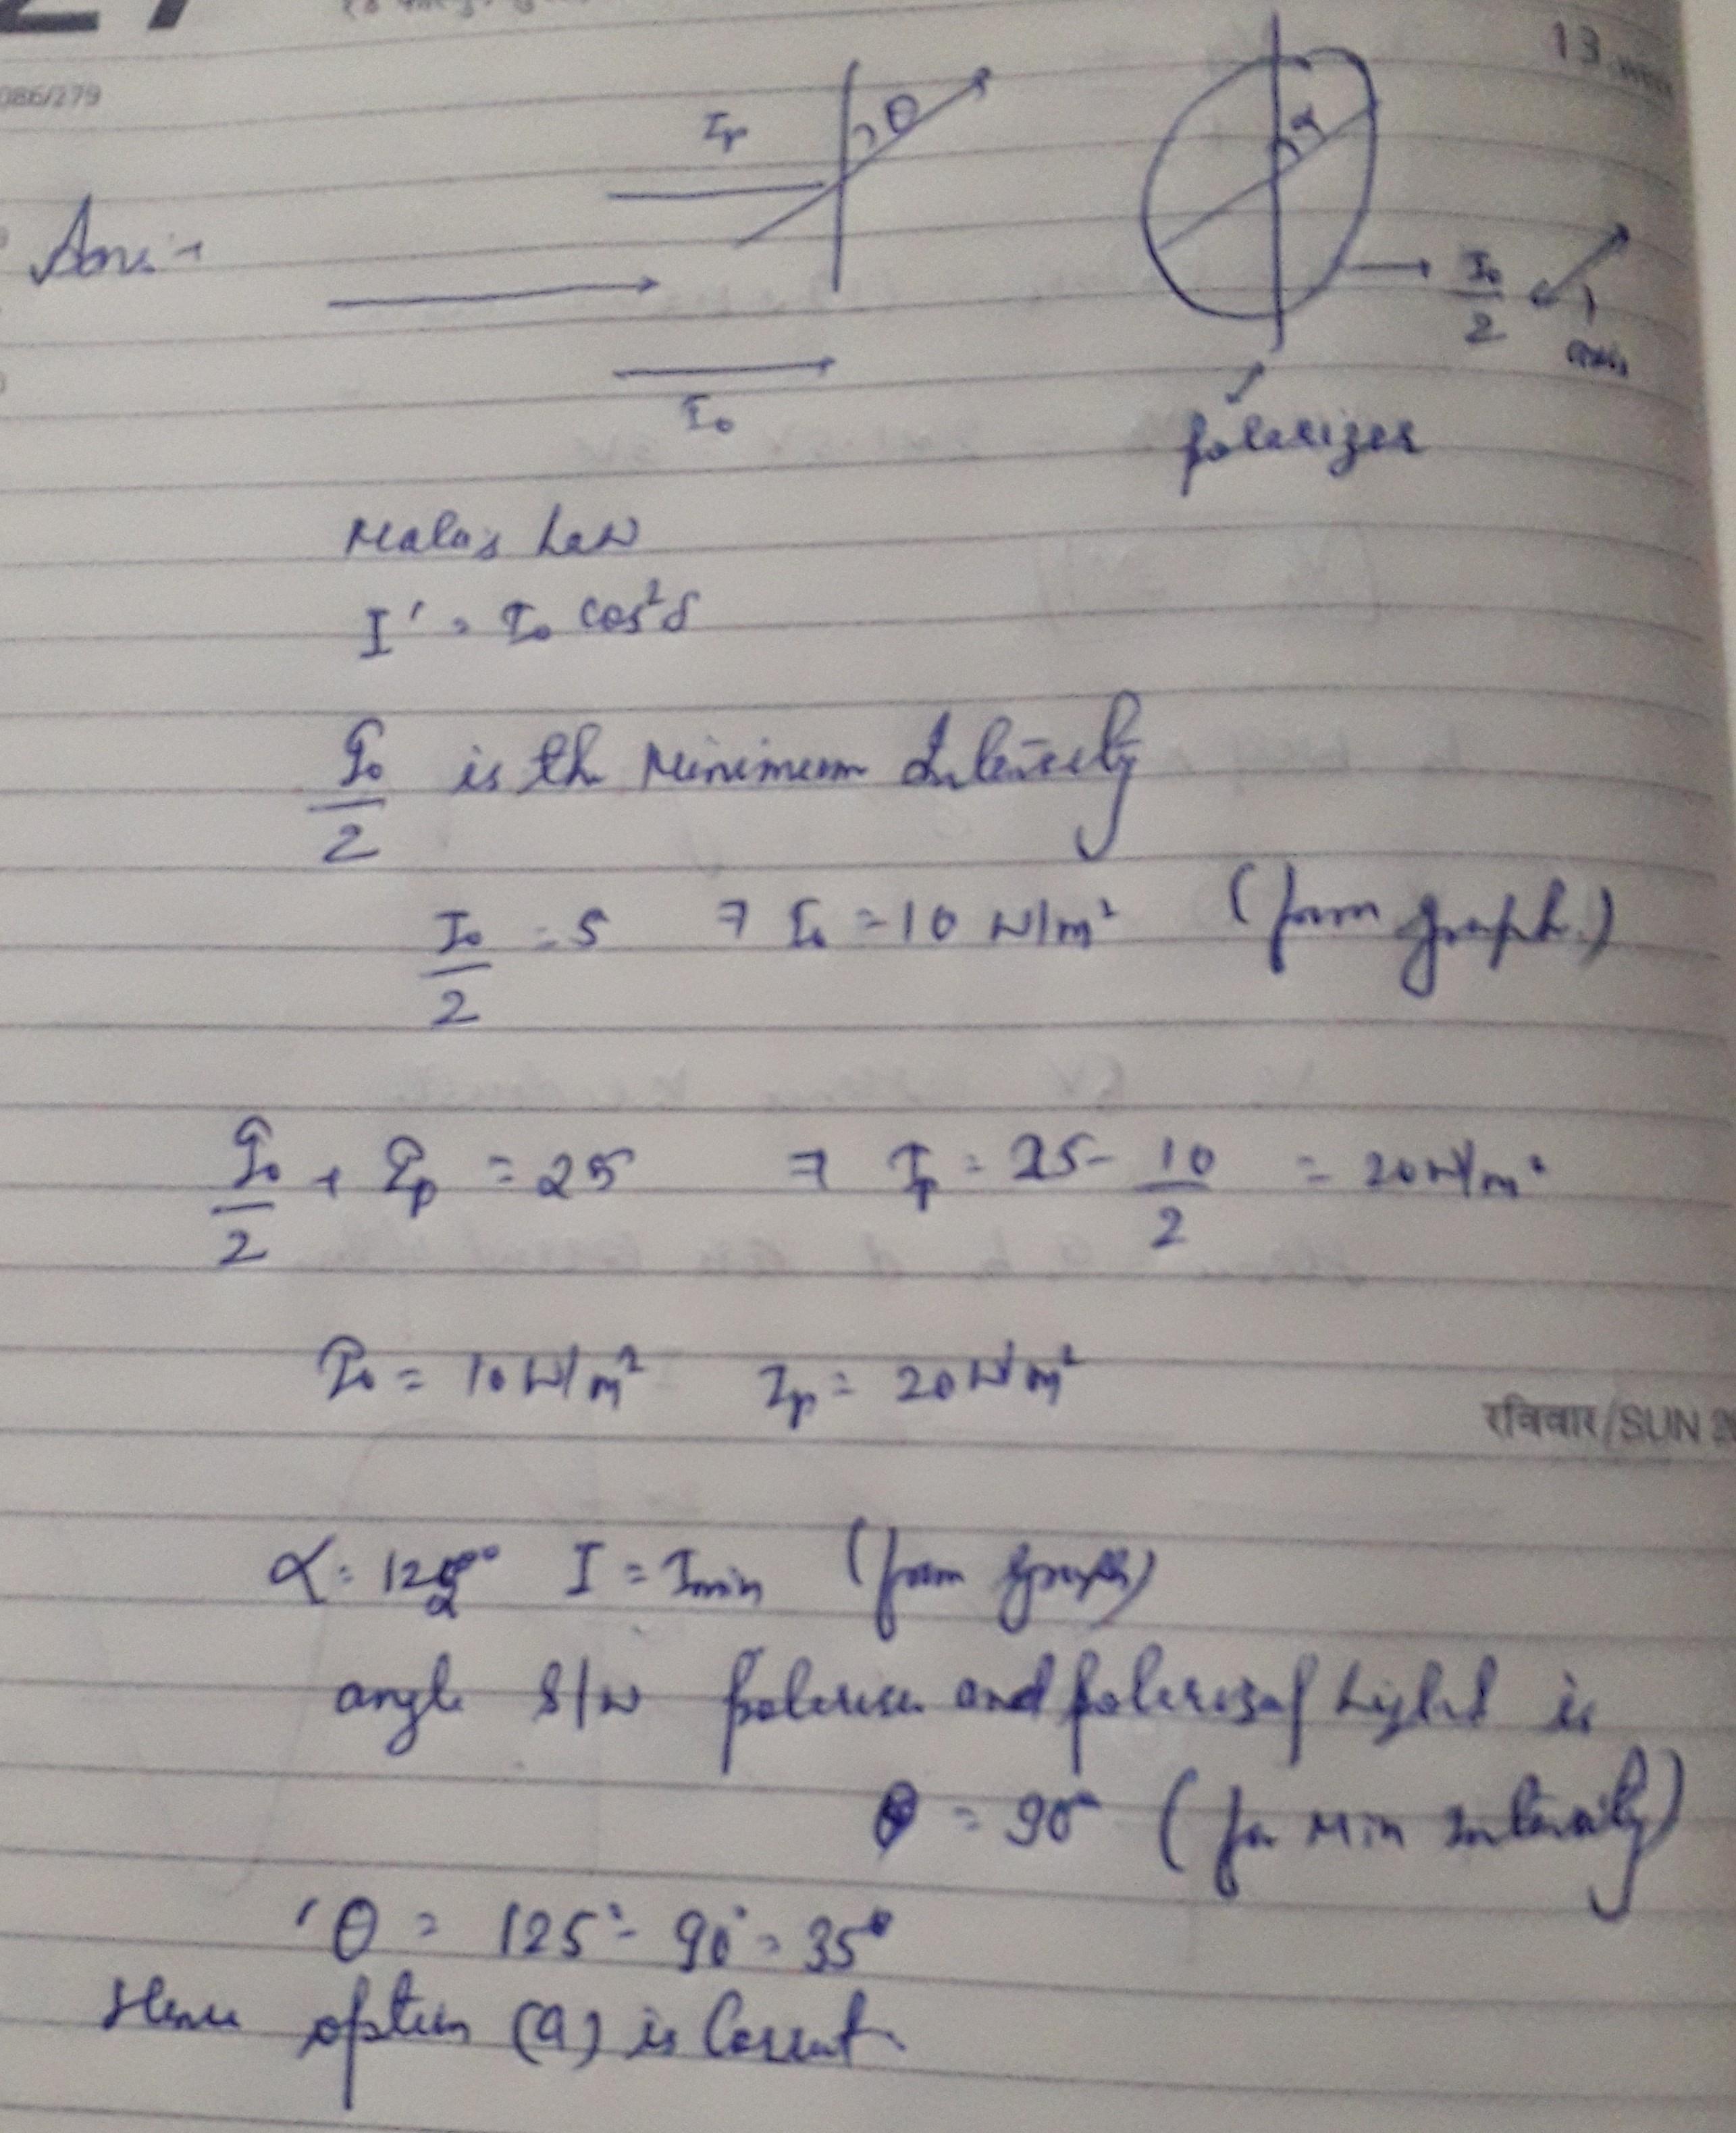 27
086/279
13
Ip θ
α
Ans :-
I₀/2
axis
I₀
polarizer
Malus Law
I' = I₀ cos²δ
I₀/2 is th Minimum Intensity
I₀/2 = 5 ⇒ I₀ = 10 W/m² (from graph.)
I₀/2 + Ip = 25 ⇒ Ip = 25 - 10/2 = 20 W/m²
I₀ = 10 W/m² Ip = 20 W/m²
रविवार/SUN
α = I = Imin (from graph)
angle b/w polariser and polarized Light is
θ = 90° (for Min Intensity)
θ = 125° - 90° = 35°
Hence option (a) is Correct